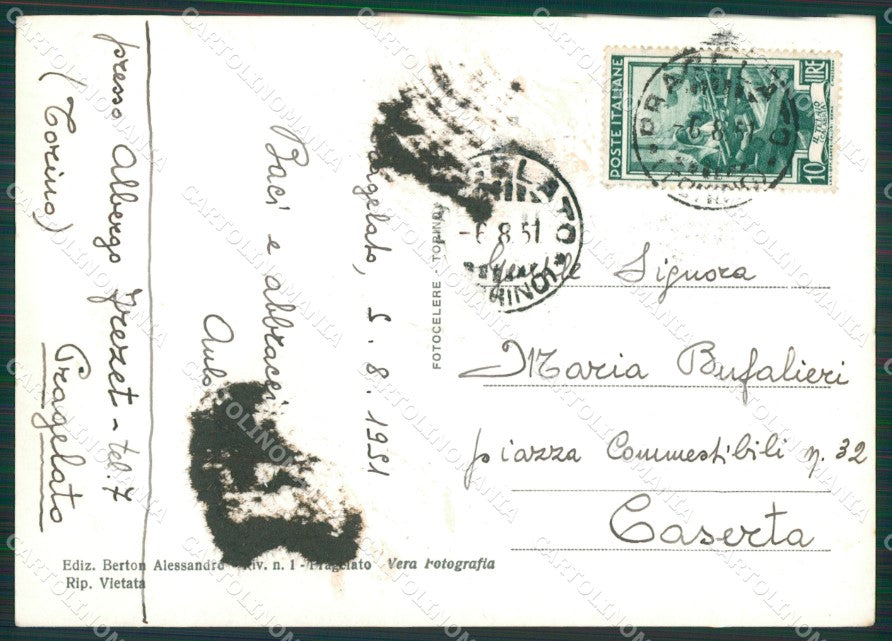 presso Albergo Frezet - tel. 7
(Torino) Pragelato
Pragelato, 5.8.1951
Baci e abbracci
FOTOCELERE - TORINO
POSTE ITALIANE
LIRE
10
PRAGELATO
-6.8.51
(TORINO)
PRAGELATO
-6.8.51
(TORINO)
Gentile Signora
Maria Bufalieri
piazza Commestibili n. 32
Caserta
Ediz. Berton Alessandro - Riv. n. 1 - Pragelato Vera Fotografia
Rip. Vietata
CARTOLINOMANIA